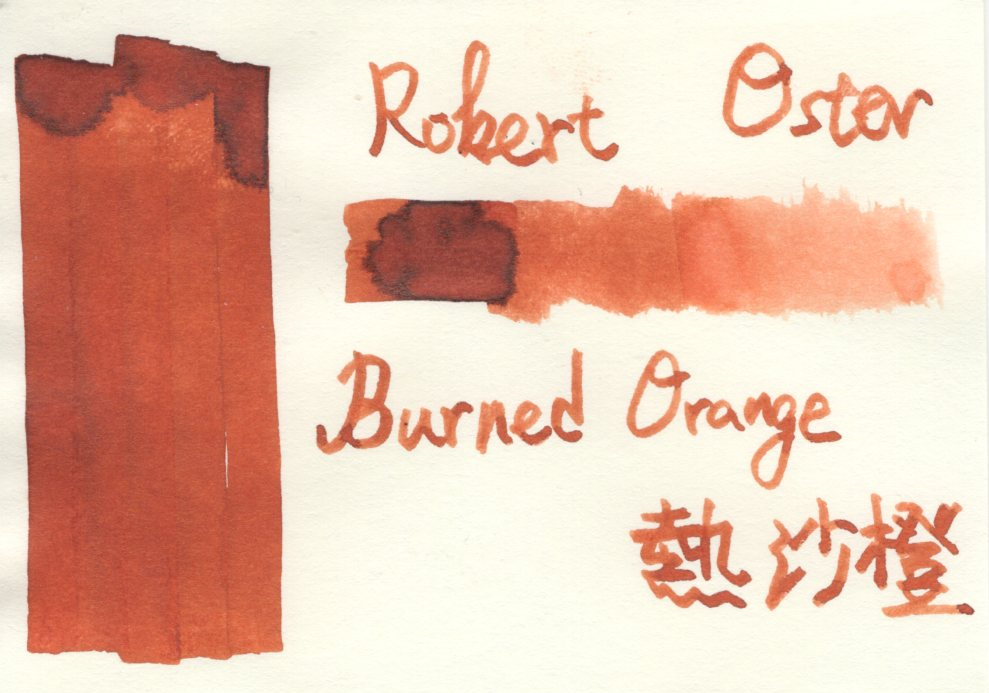 Robert Oster
Burned Orange
熱沙橙